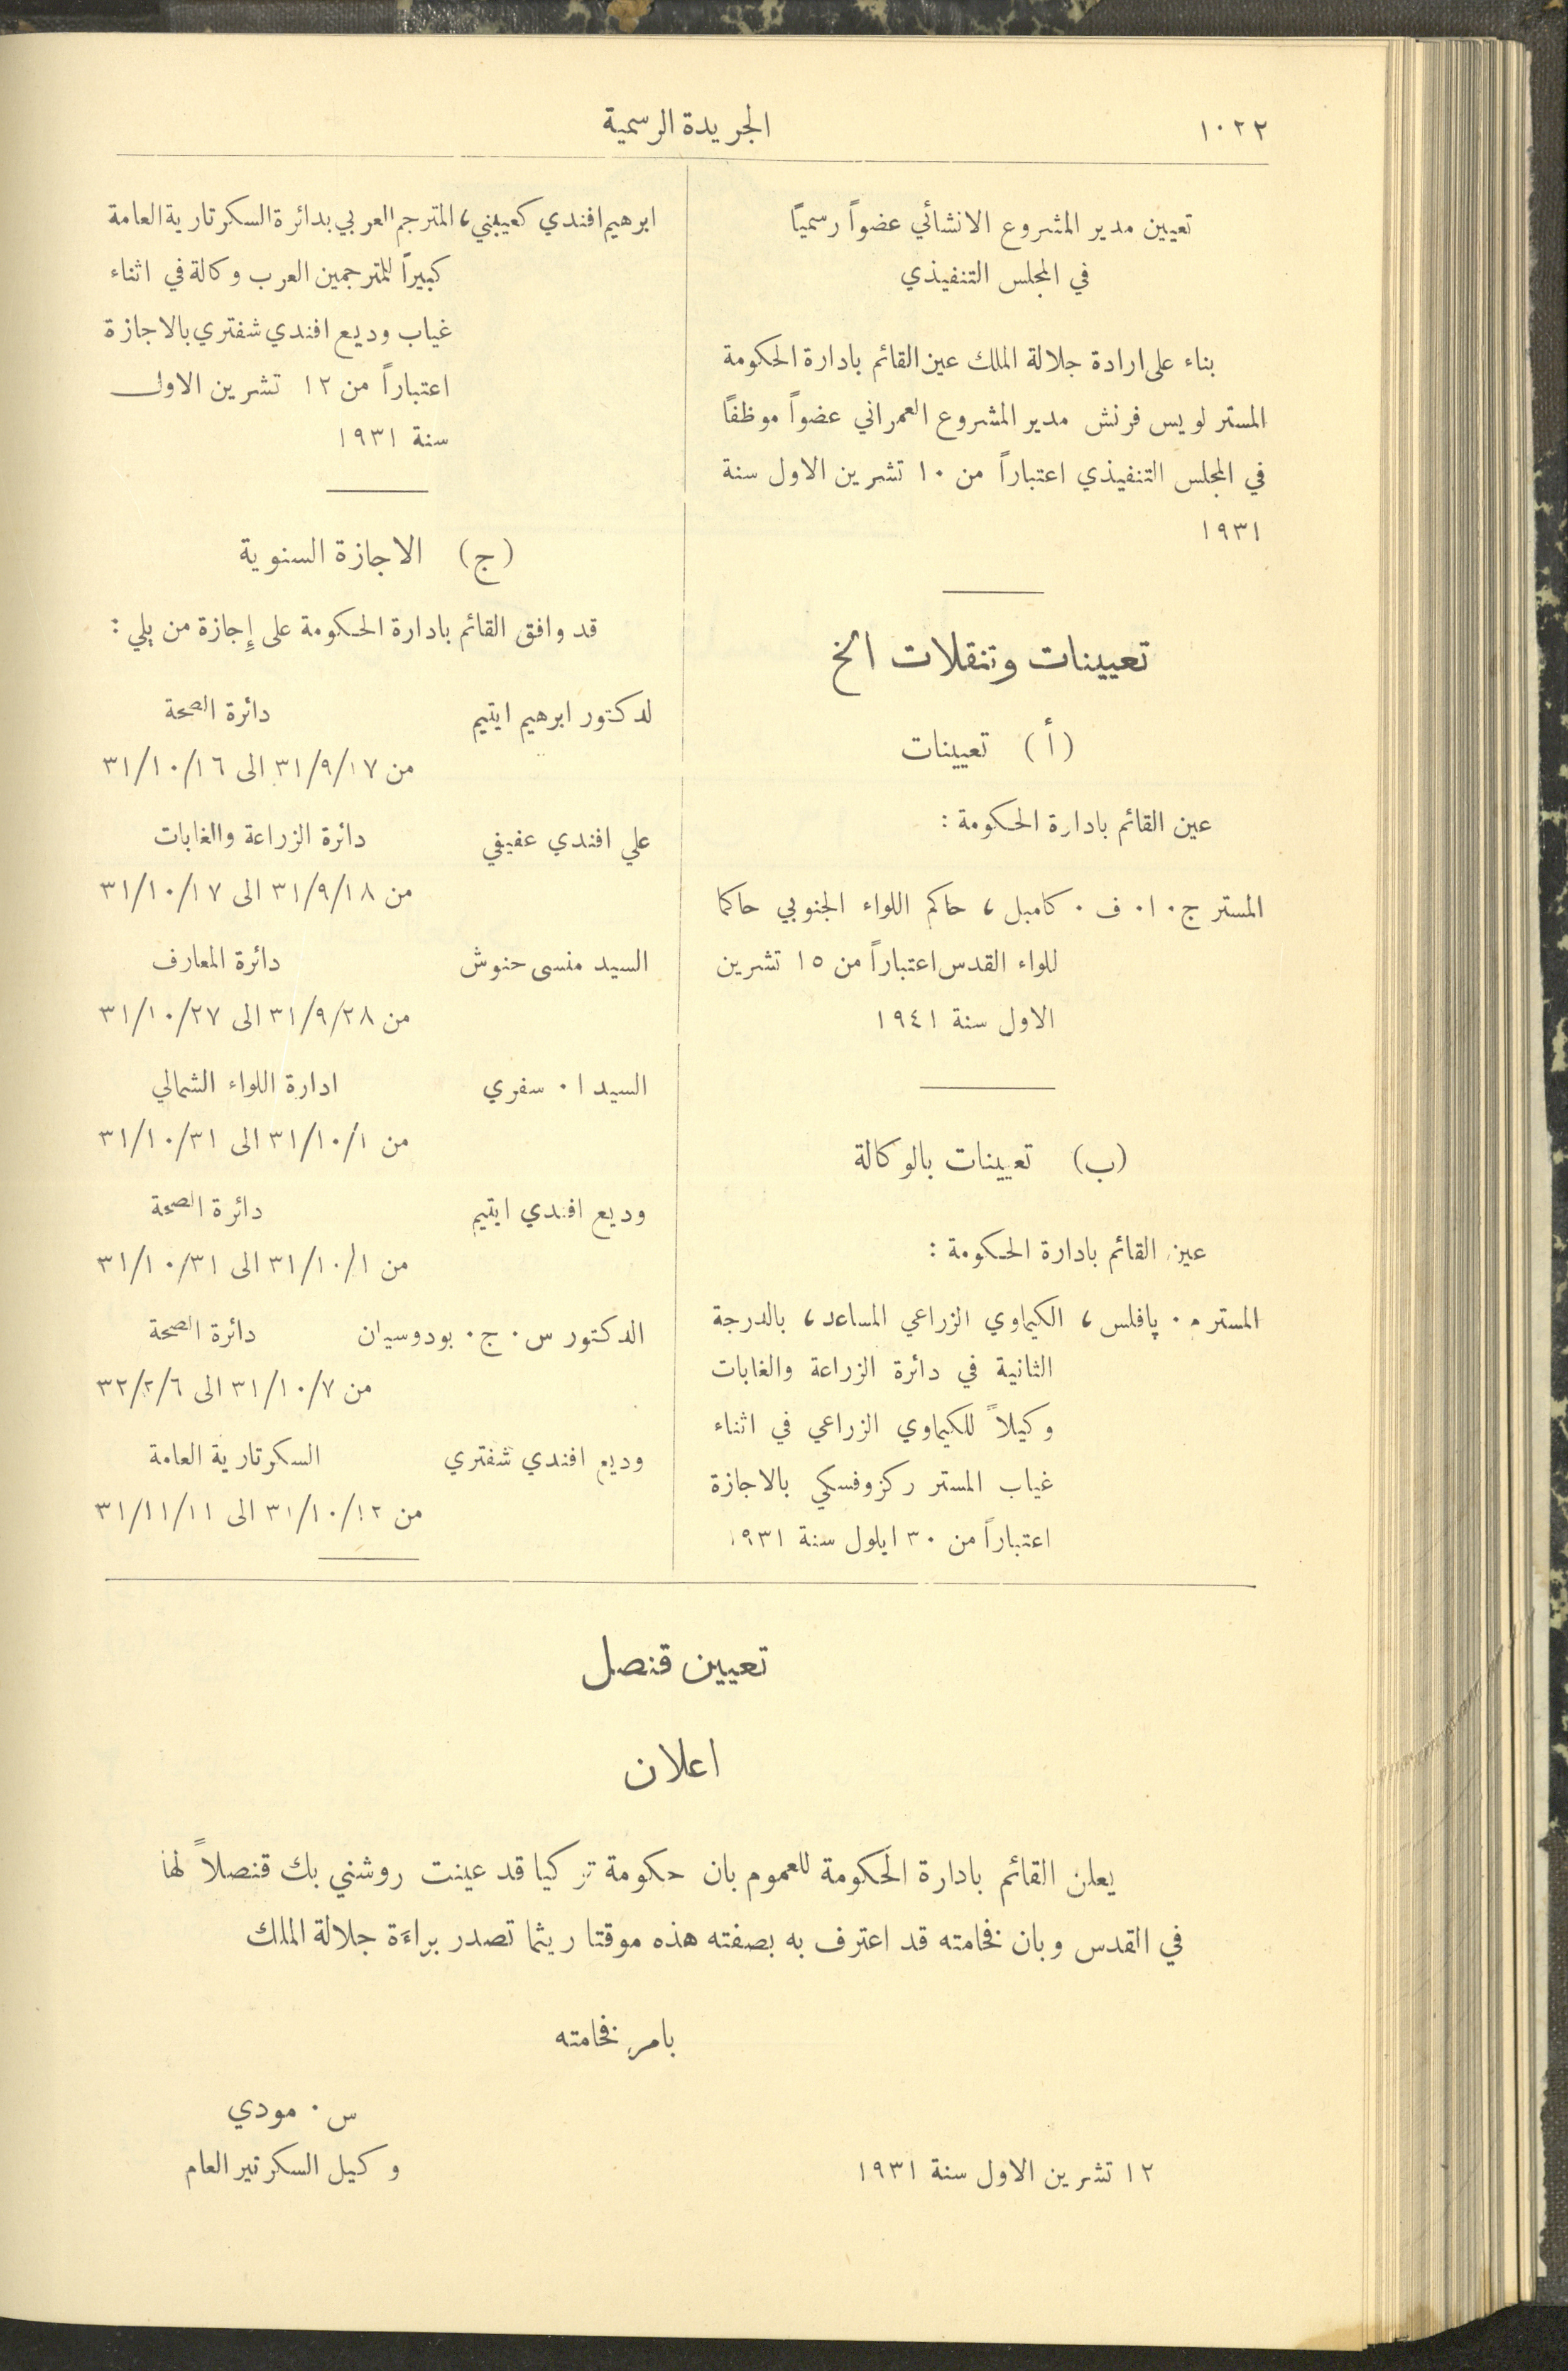 ١٠٢٢
الجريدة الرسمية
تعيين مدير المشروع الانشائي عضواً رسمياً
في المجلس التنفيذي
بناء على ارادة جلالة الملك عين القائم بادارة الحكومة
المستر لويس فرنش مدير المشروع العمراني عضواً موظفاً
في المجلس التنفيذي اعتباراً من ١٠ تشرين الاول سنة
١٩٣١
تعيينات وتنقلات الخ
(أ) تعيينات
عين القائم بادارة الحكومة :
المستر ج٠ ا٠ ف ٠ كامبل ، حاكم اللواء الجنوبي حاكما
للواء القدس اعتباراً من ١٥ تشرين
الاول سنة ١٩٤١
(ب) تعيينات بالوكالة
عين القائم بادارة الحكومة :
المستر م ٠ پافلس ، الكيماوي الزراعي المساعد ، بالدرجة
الثانية في دائرة الزراعة والغابات
وكيلاً للكيماوي الزراعي في اثناء
غياب المستر ركزوفسكي بالاجازة
اعتباراً من ٣٠ ايلول سنة ١٩٣١
ابرهيم افندي كعيبني ، المترجم العربي بدائرة السكرتارية العامة
كبيراً للمترجمين العرب وكالة في اثناء
غياب وديع افندي شفتري بالاجازة
اعتباراً من ١٢ تشرين الاول
سنة ١٩٣١
(ج) الاجازة السنوية
قد وافق القائم بادارة الحكومة على إجازة من يلي :
لدكتور ابرهيم ايتيم دائرة الصحة
من ٣١/٩/١٧ الى ٣١/١٠/١٦
علي افندي عفيفي دائرة الزراعة والغابات
من ٣١/٩/١٨ الى ٣١/١٠/١٧
السيد منسى حنوش دائرة المعارف
من ٣١/٩/٢٨ الى ٣١/١٠/٢٧
السيد ا ٠ سفري ادارة اللواء الشمالي
من ٣١/١٠/١ الى ٣١/١٠/٣١
وديع افندي ايتيم دائرة الصحة
من ٣١/١٠/١ الى ٣١/١٠/٣١
الدكتور س ٠ ج ٠ بودوسيان دائرة الصحة
من ٣١/١٠/٧ الى ٣٢/٢/٦
وديع افندي شفتري السكرتارية العامة
من ٣١/١٠/١٢ الى ٣١/١١/١١
تعيين قنصل
اعلان
يعلن القائم بادارة الحكومة للعموم بان حكومة تركيا قد عينت روشني بك قنصلاً لها
في القدس وبان فخامته قد اعترف به بصفته هذه موقتا ريثما تصدر براءة جلالة الملك
بامر فخامته
س ٠ مودي
وكيل السكرتير العام
١٢ تشرين الاول سنة ١٩٣١